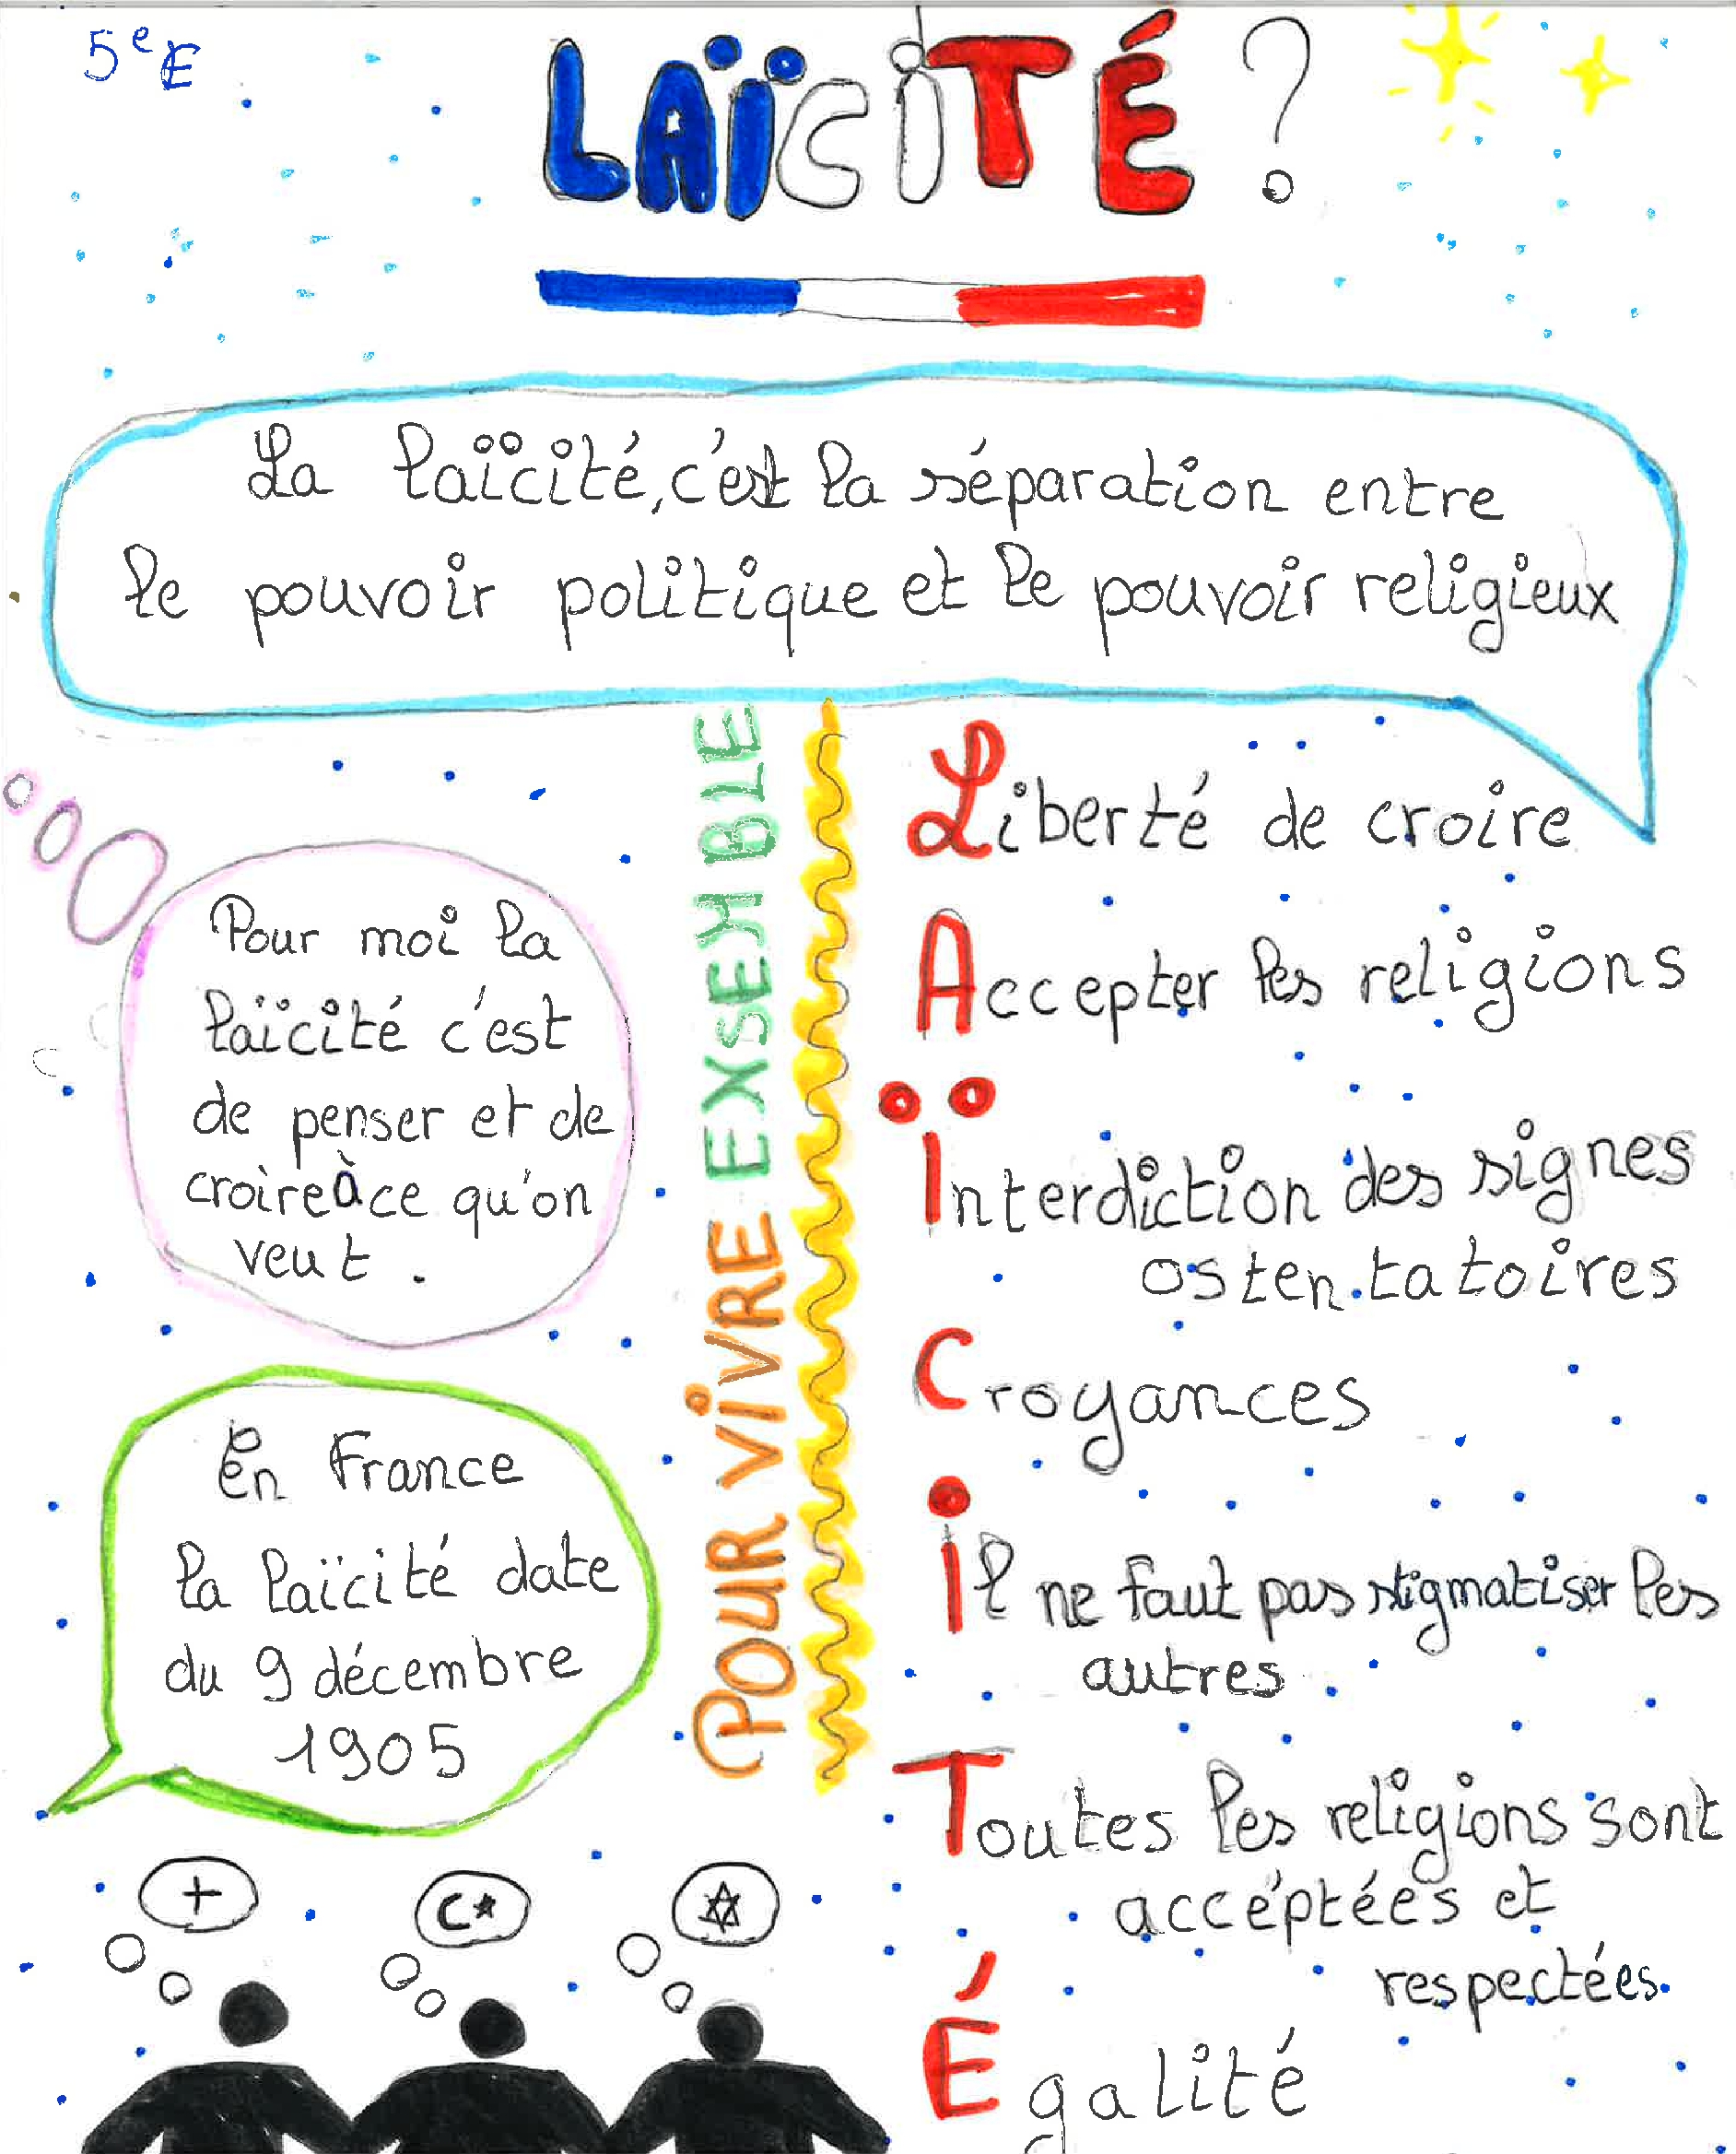 5e E
LAÏCITÉ ?
La laïcité, c'est la séparation entre
le pouvoir politique et le pouvoir religieux
Pour moi la
laïcité c'est
de penser et de
croire à ce qu'on
veut.
En France
la laïcité date
du 9 décembre
1905
POUR VIVRE EXSEMBLE
Liberté de croire
Accepter les religions
Ïnterdiction des signes
ostentatoires
Croyances
il ne faut pas stigmatiser les
autres.
Toutes les religions sont
acceptées et
respectées.
Égalité